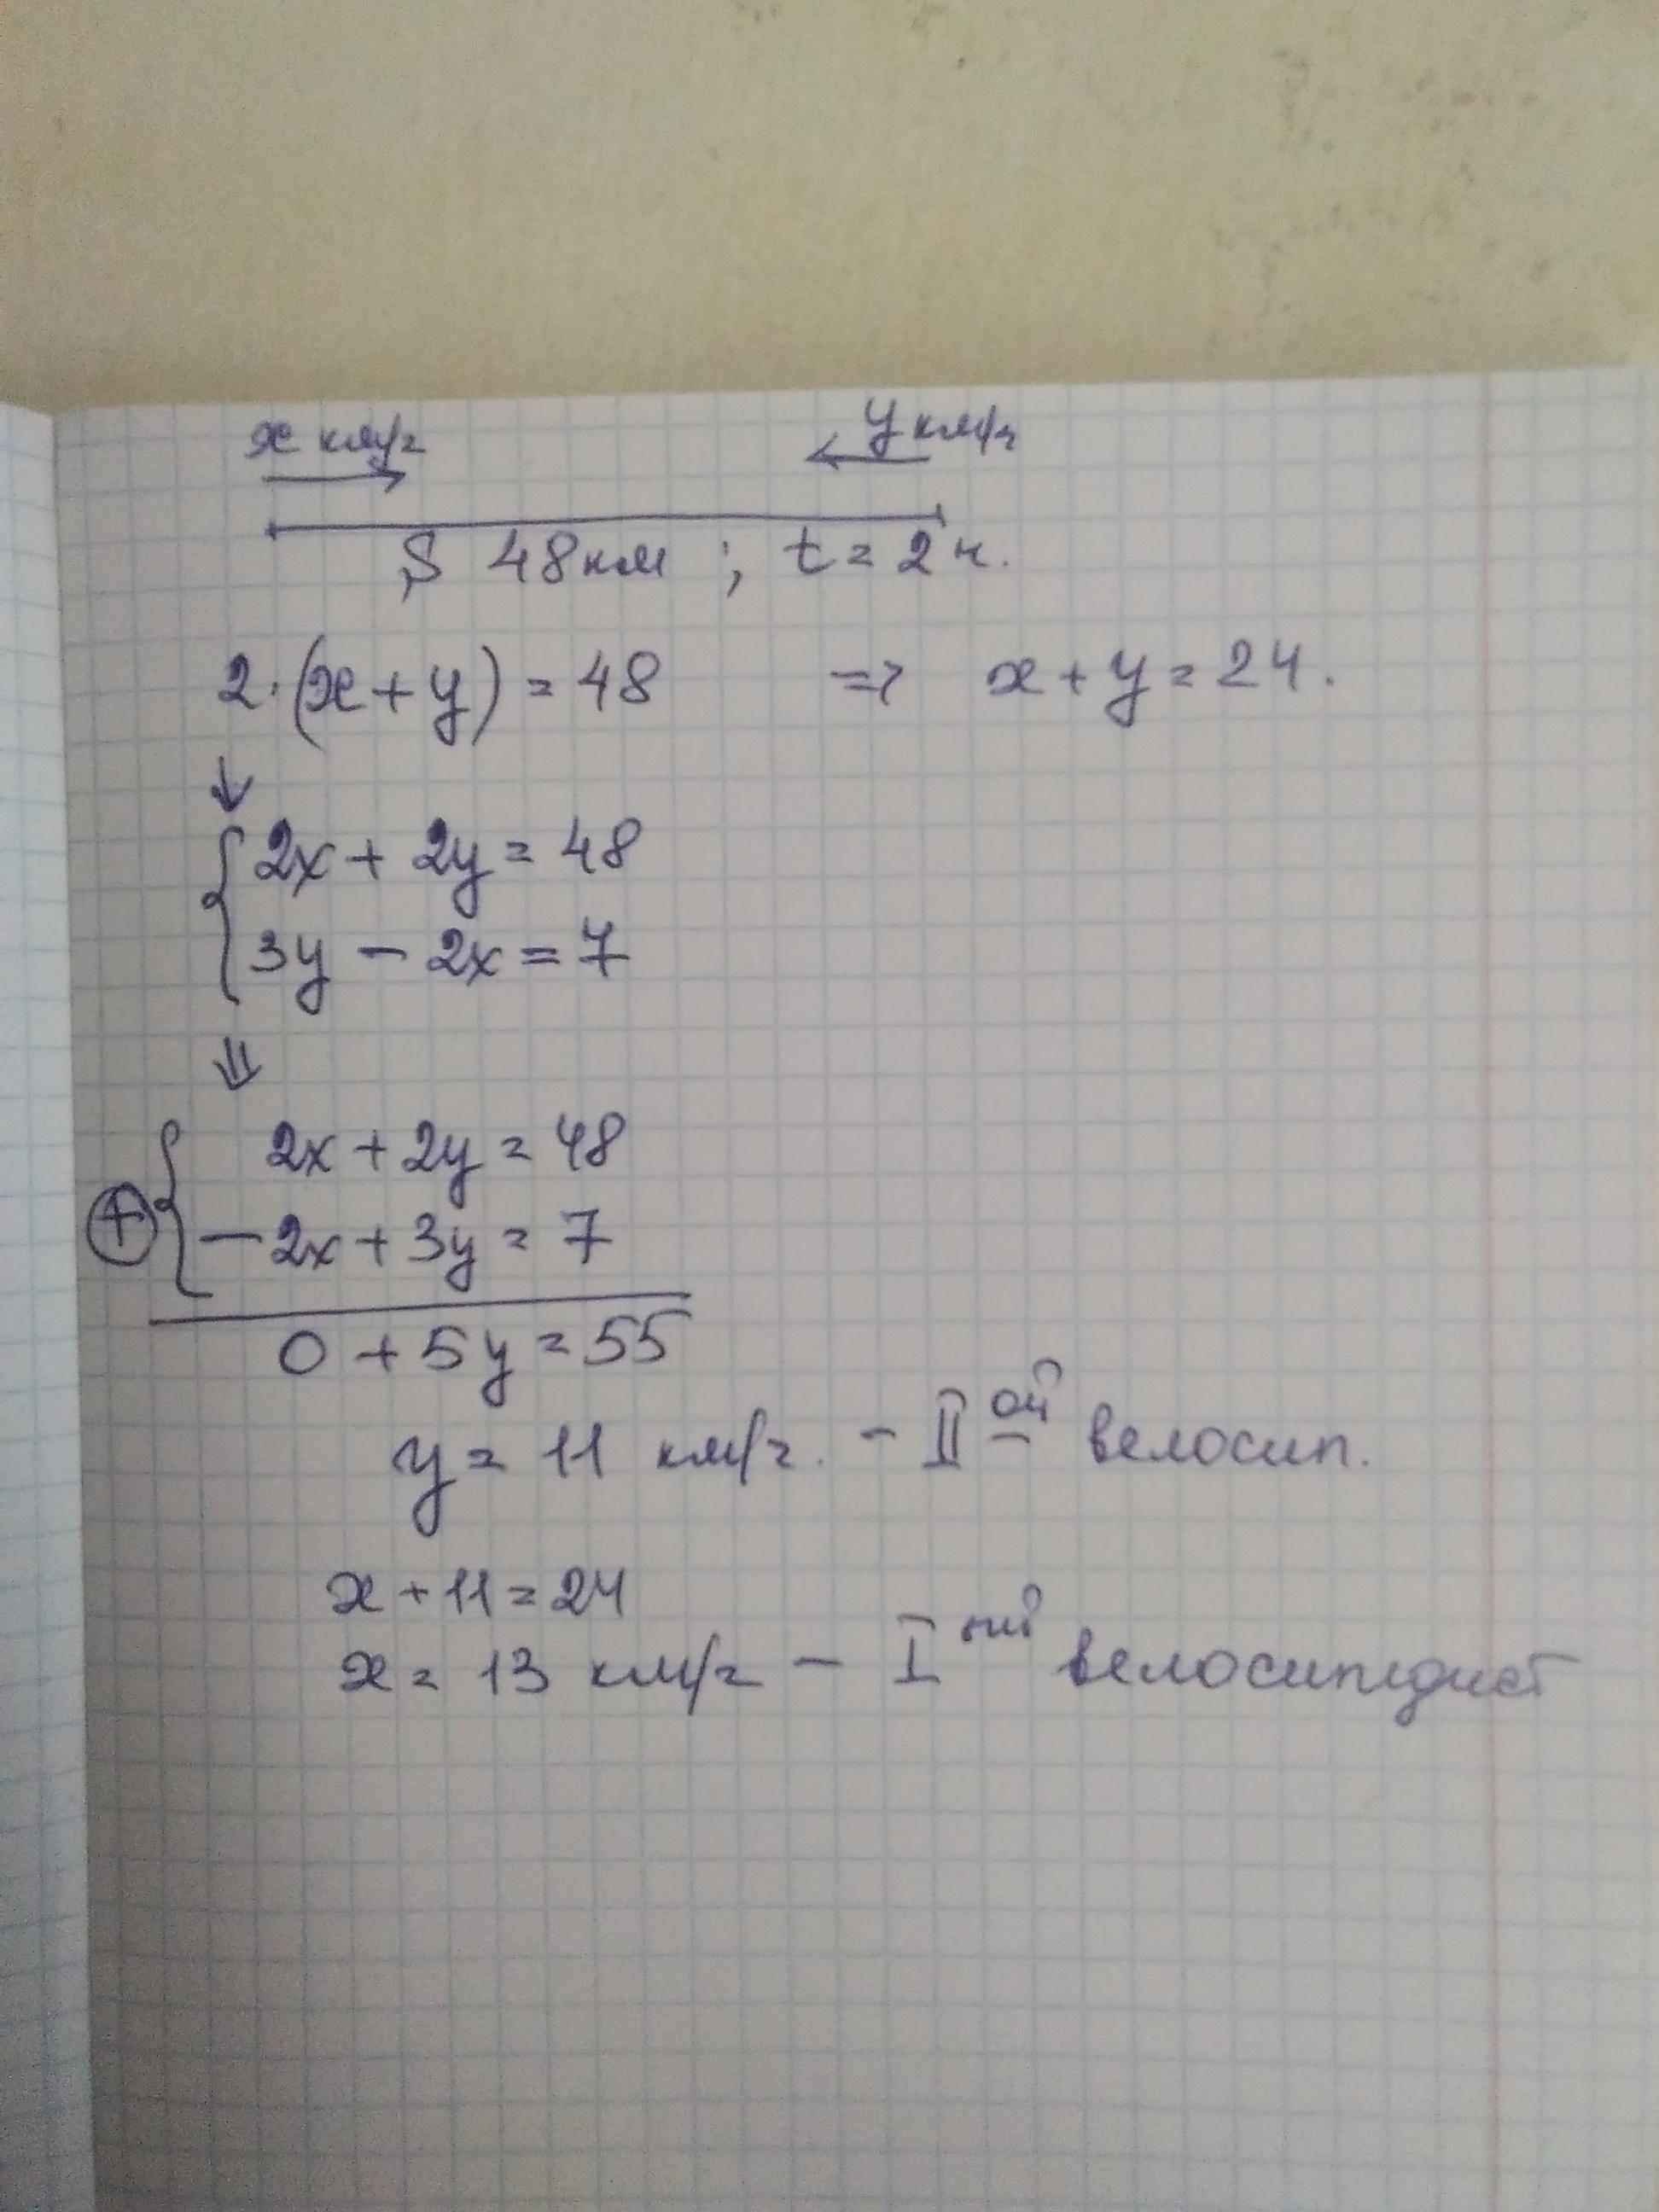 x км/ч y км/ч
S 48 км ; t = 2 ч.
2·(x + y) = 48 => x + y = 24.
2x + 2y = 48
3y - 2x = 7
2x + 2y = 48
- 2x + 3y = 7
0 + 5y = 55
y = 11 км/ч. - II ой велосип.
x + 11 = 24
x = 13 км/ч - I ый велосипедист